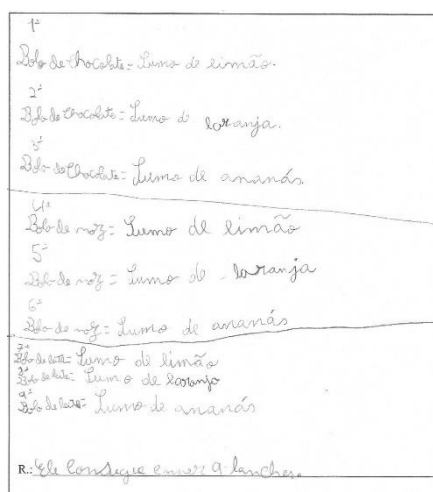 1ª
Bolo de Chocolate = Sumo de limão.
2ª
Bolo de Chocolate = Sumo de laranja.
3ª
Bolo de Chocolate = Sumo de ananás.
4ª
Bolo de noz = Sumo de limão
5ª
Bolo de noz = Sumo de laranja
6ª
Bolo de noz = Sumo de ananás
7ª
Bolo de leite = Sumo de limão
8ª
Bolo de leite = Sumo de laranja
9ª
Bolo de leite = Sumo de ananás
R.: Ele consegue 9 lanches.